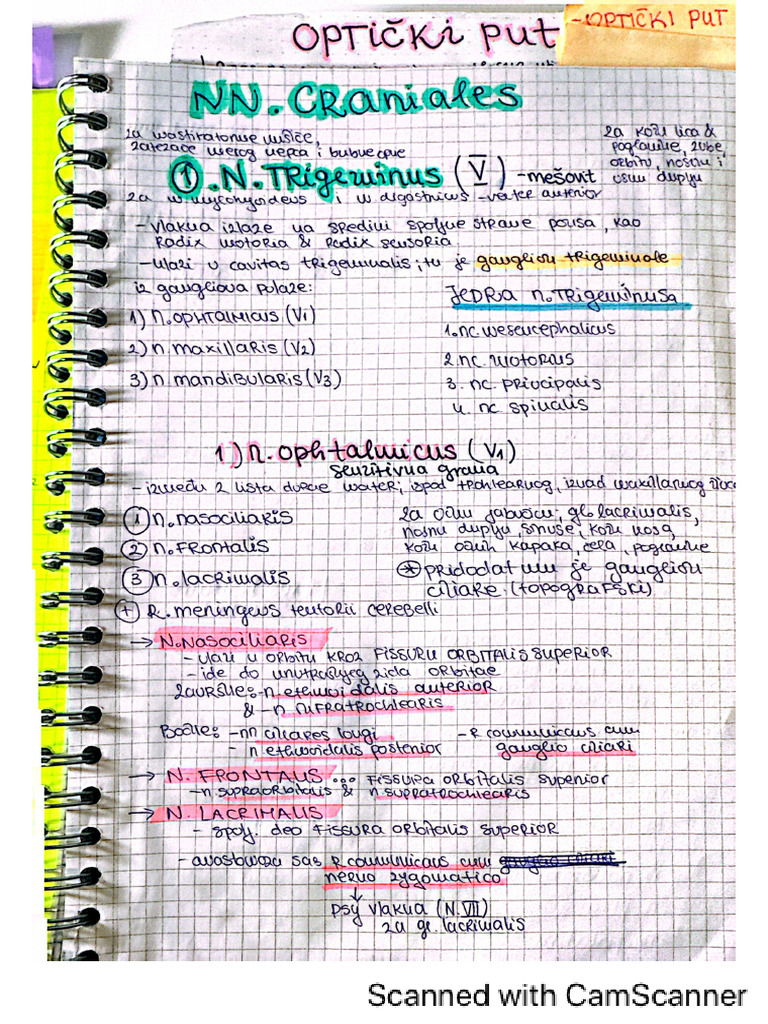 OPTIČKI PUT
-OPTIČKI PUT
NN. CRANIALES
za mastikatorne mišiće,
zatezače mekog nepca i bubne opne
za kožu lica &
poglavine, zube,
orbitu, nosnu i
usnu duplju
1. N. TRIGEMINUS (V) -mešovit
za m mylohyoideus i m digastricus -venter anterior
-vlakna izlaze na sredini spoljne strane ponsa, kao
Radix motoria & Radix sensoria
-ulazi u cavitas trigeminalis; tu je ganglion trigeminale
iz gangliona polaze:
JEDRA N. TRIGEMINUSA
1) N. OPHTALMICUS (V1)
2) n. maxillaris (V2)
3) n. mandibularis (V3)
1. nc. mesencephalicus
2. nc. motorius
3. nc. principalis
4. nc spinalis
1) N. ophtalmicus (V1)
senzitivna grana
-između 2 lista dure mater; ispod trohlearnog, iznad maksilarnog
1 n. nasociliaris
2 n. FRONTALIS
3 n. lacrimalis
+ R. meningeus tentorii cerebelli
za očnu jabučicu, gl. lacrimalis,
nosnu duplju, sinuse, kožu nosa,
kožu očnih kapaka, čela, poglavine
* pridodat mu je ganglion
ciliare (topografski)
→ N. NASOCILIARIS
-ulazi u orbitu KROZ FISSURU ORBITALIS SUPERIOR
-ide do unutrašnjeg zida orbitae
završne:-n ethmoidalis anterior
& -n INFRATROCHLEARIS
Bočne: -nn ciliares longi
- n ethmoidalis posterior
-R communicans cum
ganglio ciliari
→ N. FRONTALIS ... FISSURA ORBITALIS SUPERIOR
-n supraorbitalis & n supratrochlearis
→ N. LACRIMALIS
- spolj. deo FISSURA ORBITALIS SUPERIOR
-anastomoza sa R communicans cum
nervo zygomatico
↓
psy vlakna (N. VII)
za gl. lacrimalis
Scanned with CamScanner